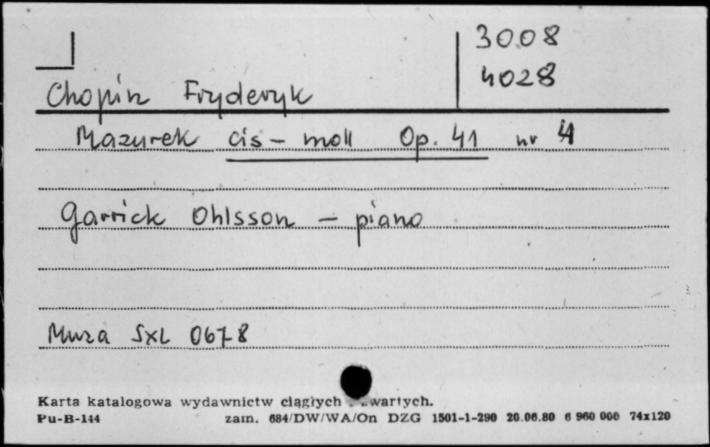 3008
4028
Chopin Fryderyk
Mazurek cis-moll Op. 41 nr 4
Garrick Ohlsson - piano
Muza SXL 0678
Karta katalogowa wydawnictw ciągłych zwartych.
Pu-B-144 zam. 684/DW/WA/On DZG 1501-1-290 20.06.80 6 960 000 74x120